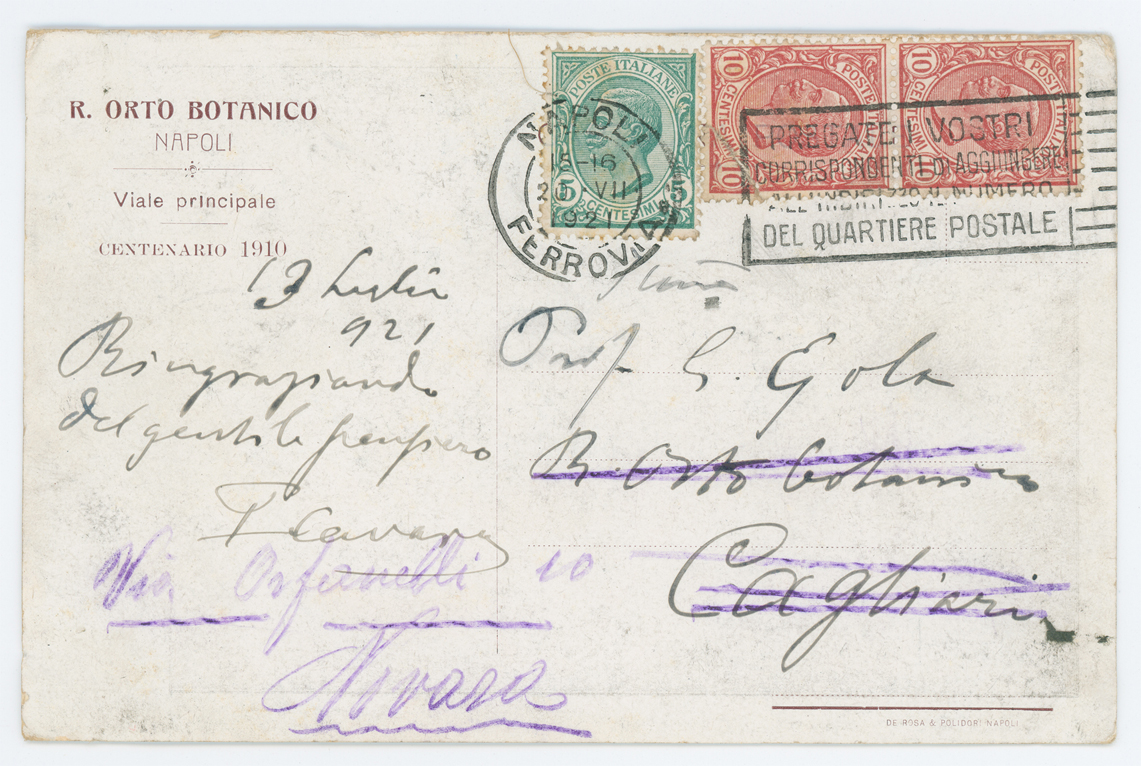 R. ORTO BOTANICO
NAPOLI
Viale principale
CENTENARIO 1910
POSTE ITALIANE
5 CENTESIMI 5
10 CENTESIMI 10
POSTE ITALIANE
10 CENTESIMI
POSTE ITALIANE
NAPOLI
15-16
VII
1921
FERROVIA
PREGATE I VOSTRI
CORRISPONDENTI DI AGGIUNGERE
ALL'INDIRIZZO IL NUMERO
DEL QUARTIERE POSTALE
Luglio
921
Ringraziando
del gentile pensiero
F Cavara
Prof. G. Gola
R. Orto botanico
Cagliari
Via Orfanelli 10
Novara
DE ROSA & POLIDORI NAPOLI